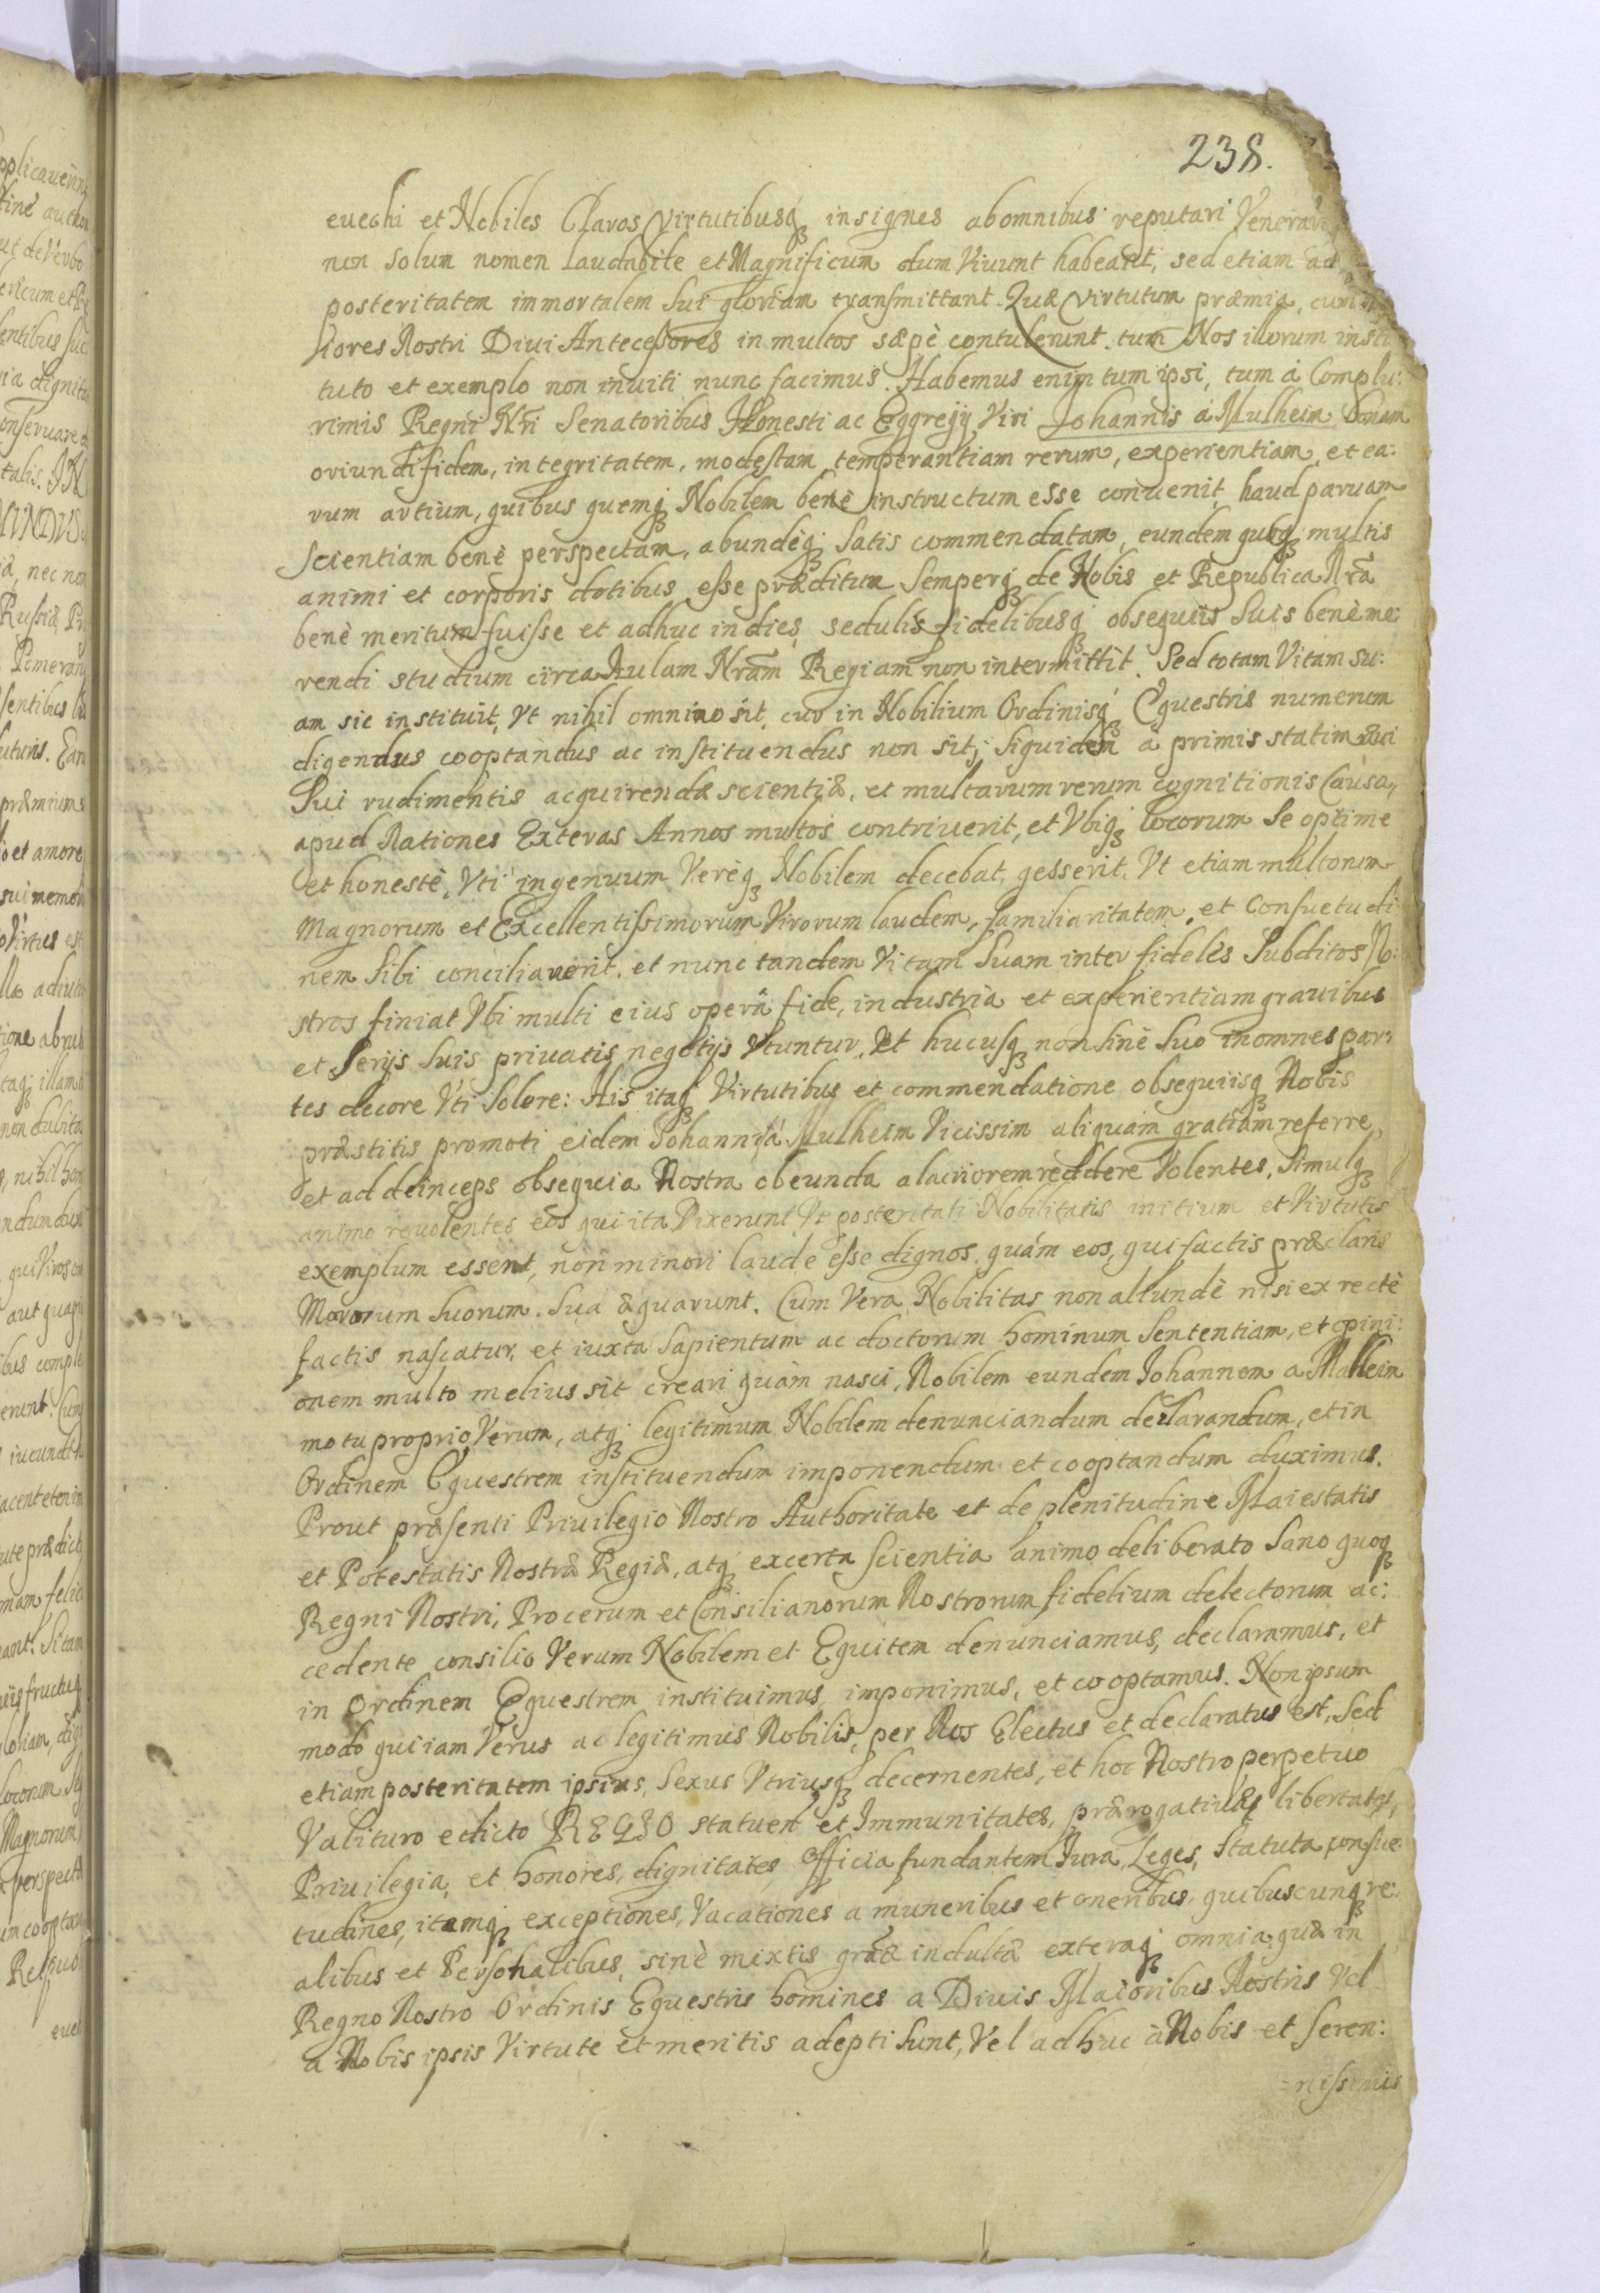 238.
euechi et Nobiles Claros Virtutibusq insignes ab omnibus reputari
non solum nomen laudabile et Magnificum dum Viuunt habeant, sed etiam ad
posteritatem immortalem sui gloriam transmittant. Quæ Virtutum præmia, cum
iores Nostri Diui Antecessores in multos sæpè contulerunt. tum Nos illorum insti
tuto et exemplo non inuiti nunc facimus. Habemus enim tum ipsi, tum à Complu:
rimis Regni Nri Senatoribus Honesti ac Eggregij Viri Johannis á Mulheim bonam
oriundi fidem, integritatem, modestam temperantiam rerum, experientiam, et ea:
rum artium, quibus quemq Nobilem benè instructum esse conuenit, haud paruam
Scientiam benè perspectam, abundèq Satis commendatam, eundem quoq multis
animi et corporis dotibus esse præditum Semperq de Nobis et Republica Nrâ
benè meritum fuisse et adhuc indies, sedulis fidelibusq obsequiis Suis benè me:
rendi studium circa Aulam Nram Regiam non intermittit. Sed totam Vitam su:
am sic instituit, Vt nihil omnino sit, cur in Nobilium Ordinisq Equestris numerum
digendus cooptandus ac instituendus non sit, siquidem à primis statim
Sui rudimentis acquirendæ scientiæ, et multarum rerum cognitionis Causa,
apud Nationes Exteras Annos multos contriuerit, et Vbiq locorum Se optime
et honestè, Vti ingenuum Verèq Nobilem decebat, gesserit. Vt etiam multorum
Magnorum et Excellentissimorum Virorum laudem, familiaritatem, et Consuetudi
nem Sibi conciliauerit. et nunc tandem Vitam Suam inter fideles Subditos No:
stros finiat Vbi multi eius operâ fide, industria et experientiam grauibus
et Serijs Suis priuatis negotijs Vtuntur. Et hucusq non sinè Suo in omnes par:
tes decore Vti Solere: His itaq Virtutibus et commendatione obsequiisq Nobis
præstitis promoti eidem Johanni á Mulheim Vicissim aliquam gratiam referre,
et ad deinceps obsequia Nostra obeunda alacriorem reddere Volentes, Simulq
animo reuolentes eos qui ita Vixerunt Vt posteritati Nobilitatis initium et Virtutis
exemplum essent, non minori laude esse dignos, quám eos, qui factis præclaris
Maiorum Suorum. Sua æquarunt. Cum Vera Nobilitas non aliundè nisi ex rectè
factis nascatur, et iuxta Sapientum ac doctorum hominum Sententiam, et opini:
onem multo melius sit creari quàm nasci, Nobilem eundem Johannem a Mulheim
motu proprio Verum, atq legitimum Nobilem denunciandum declarandum, et in
Ordinem Equestrem instituendum imponendum et cooptandum duximus.
Prout præsenti Priuilegio Nostro Authoritate et de plenitudine Maiestatis
et Potestatis Nostræ Regiæ, atq excerta Scientia animo deliberato Sano quoq
Regni Nostri, Procerum et Consilianorum Nostrorum fidelium delectorum ac:
cedente consilio Verum Nobilem et Equitem denunciamus, declaramus, et
in Ordinem Equestrem instituimus, imponimus, et cooptamus. Non ipsum
modo qui iam Verus ac legitimus Nobilis, per Nos Electus et declaratus est, Sed
etiam posteritatem ipsius, Sexus Vtriusq decernentes, et hoc Nostro perpetuo
Valituro edicto REGIO statuen et Immunitates, prærogatiuas libertates,
Priuilegia, et honores, dignitates, Officia fundantem Jura, Leges, Statuta consue
tudines, itemq exceptiones, Vacationes a muneribus et oneribus, quibuscunq re:
alibus et Personalibus, sinè mixtis indultâ exteraq omnia, quæ in
Regno Nostro Ordinis Equestris homines a Diuis Maioribus Nostris Vel
a Nobis ipsis Virtute et meritis adepti Sunt, Vel adhuc à Nobis et Seren:
=nissimis